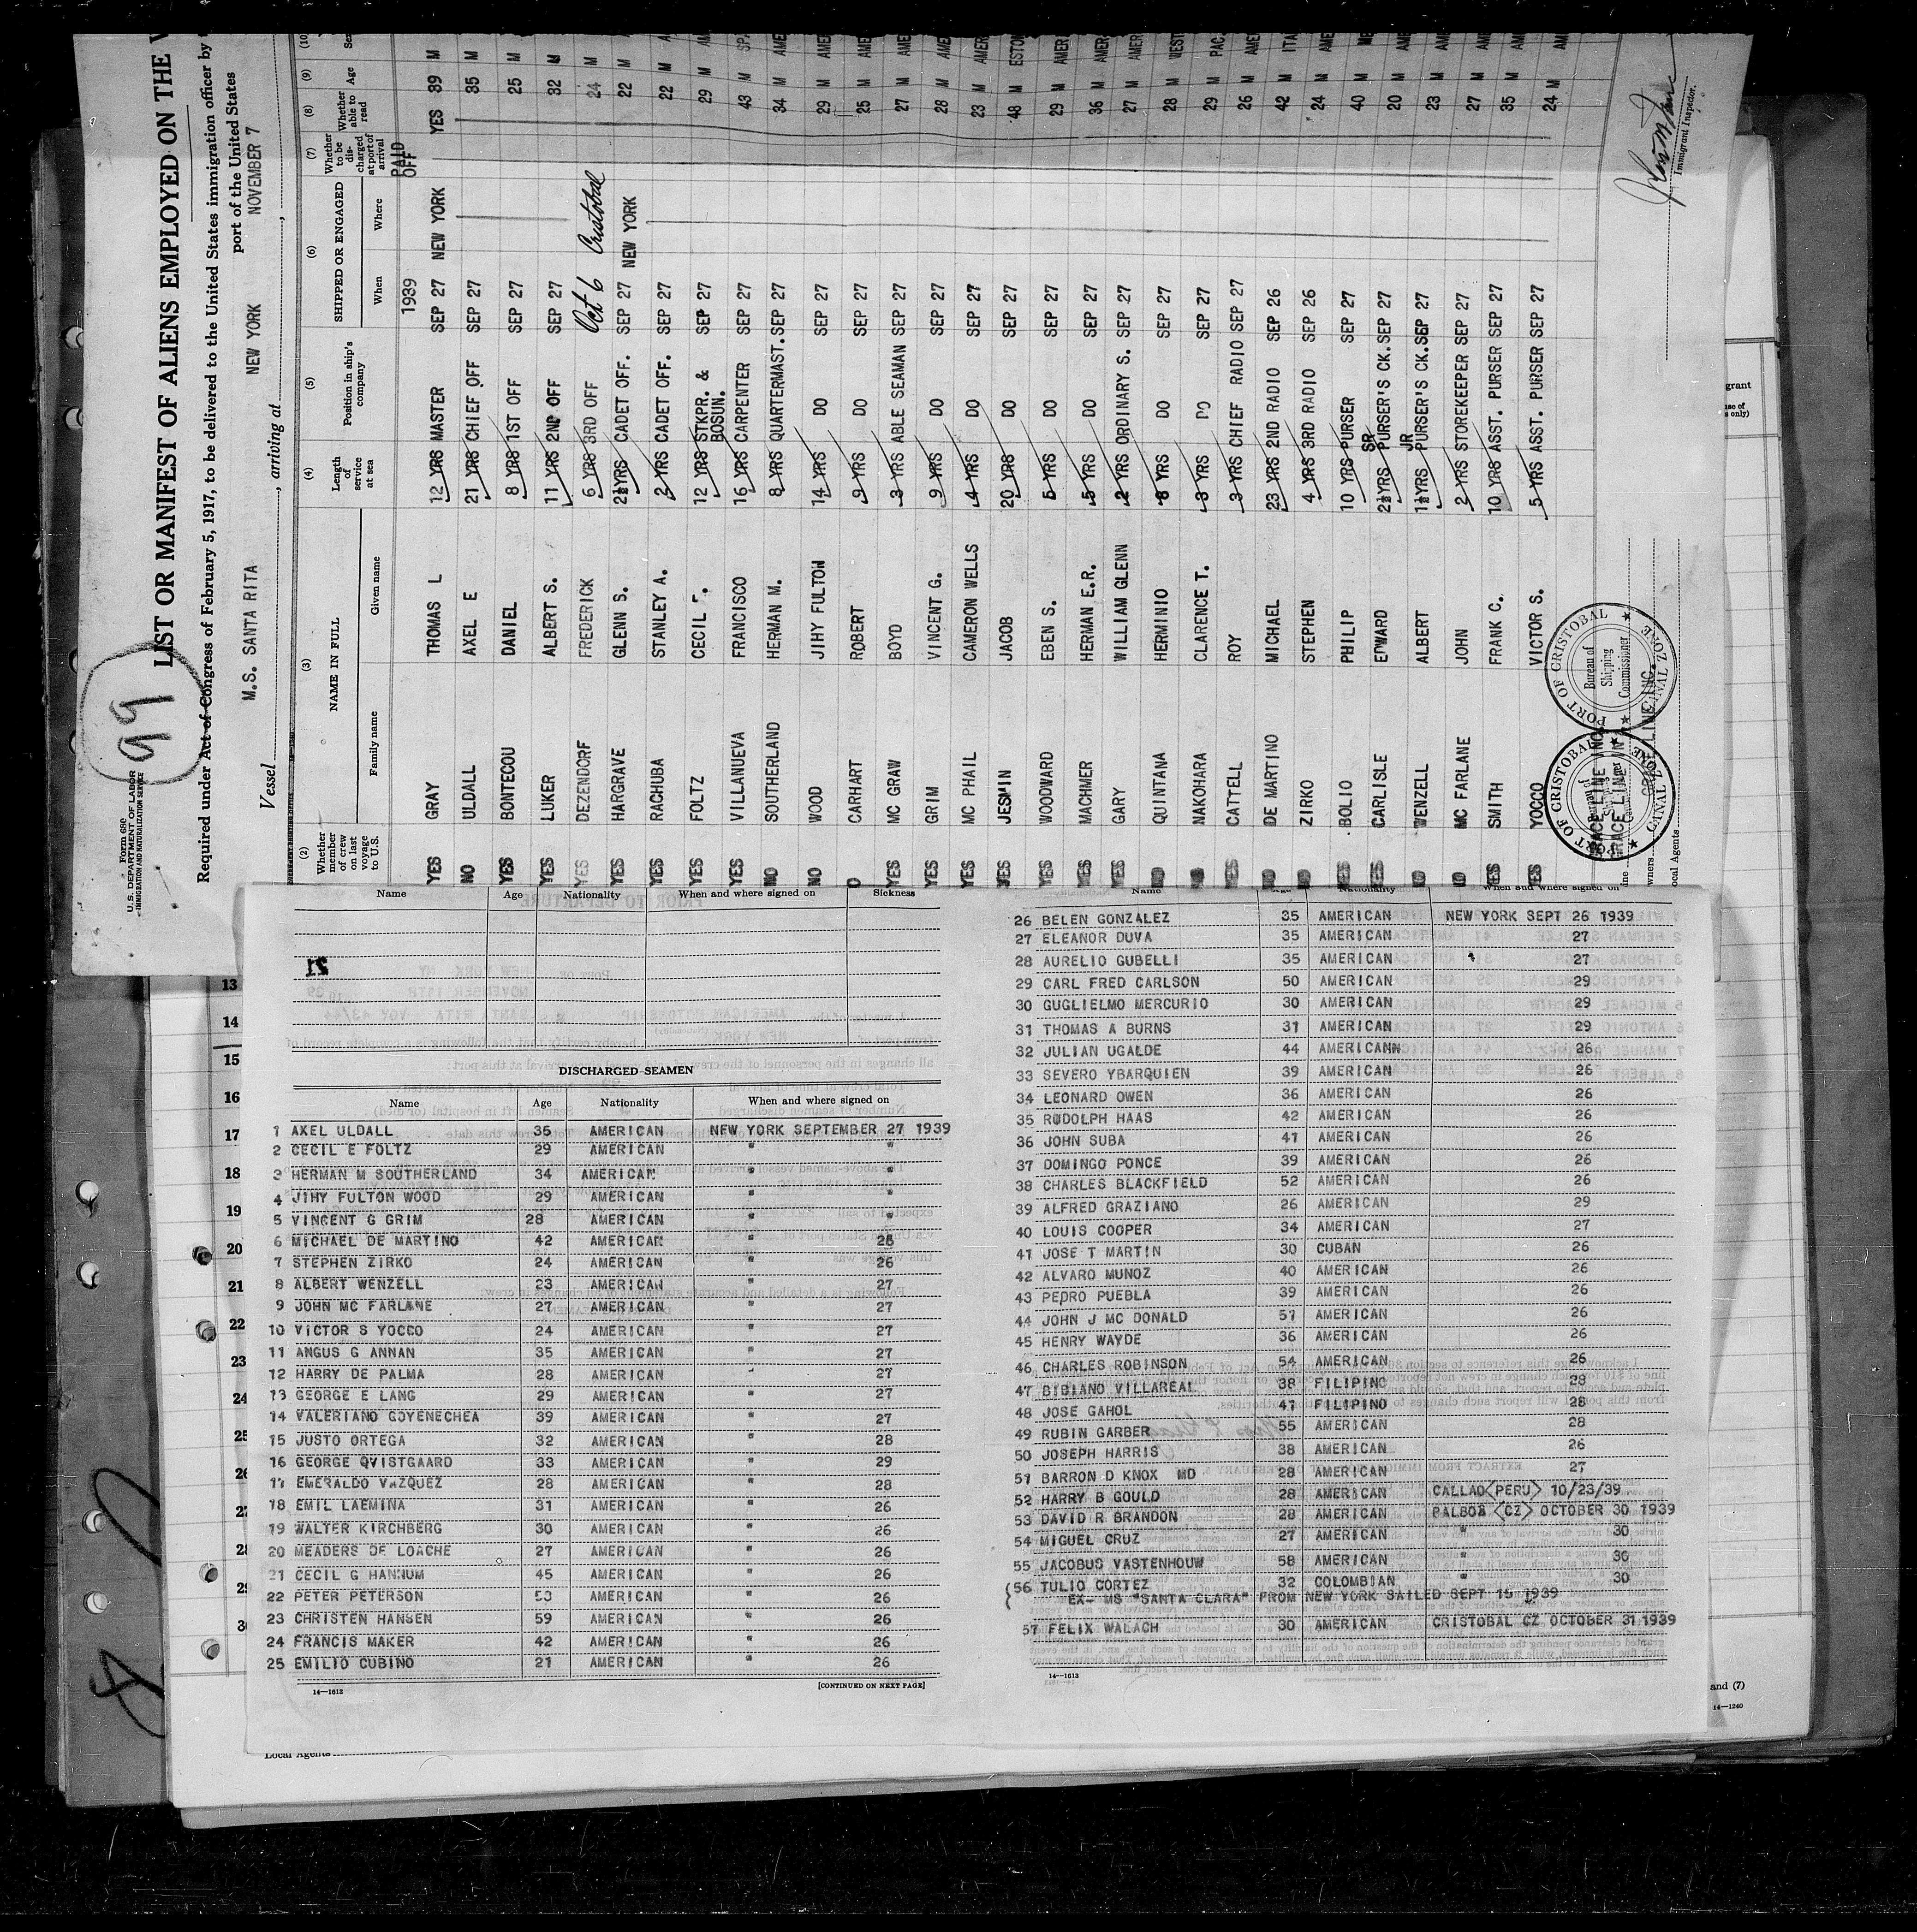 99
Form 680
U. S. DEPARTMENT OF LABOR
IMMIGRATION AND NATURALIZATION SERVICE
LIST OR MANIFEST OF ALIENS EMPLOYED ON THE
Required under Act of Congress of February 5, 1917, to be delivered to the United States immigration officer by
port of the United States
Vessel M.S. SANTA RITA, arriving at NEW YORK NOVEMBER 7,
(2) (3) (4) (5) (6) (7) (8) (9) (10)
Whether member of crew on last voyage to U.S. NAME IN FULL Length of service at sea Position in ship's company SHIPPED OR ENGAGED Whether to be discharged at port of arrival Whether able to read Age
Family name Given name When Where
1939 PAID OFF
YES GRAY THOMAS L 12 YRS MASTER SEP 27 NEW YORK YES 39 M
NO ULDALL AXEL E 21 YRS CHIEF OFF SEP 27 35 M
YES BONTECOU DANIEL 8 YRS 1ST OFF SEP 27 25 M
YES LUKER ALBERT S. 11 YRS 2ND OFF SEP 27 32 M
YES DEZENDORF FREDERICK 6 YRS 3RD OFF Oct 6 Cristobal 24 M
YES HARGRAVE GLENN S. 2½YRS CADET OFF. SEP 27 NEW YORK 22 M
YES RACHUBA STANLEY A. 2 YRS CADET OFF. SEP 27 22 M
YES FOLTZ CECIL 12 YRS STKPR. & BOSUN. SEP 27 29 M
YES VILLANUEVA FRANCISCO 16 YRS CARPENTER SEP 27 43 M
NO SOUTHERLAND HERMAN M. 8 YRS QUARTERMAST. SEP 27 34 M
NO WOOD JIHY FULTON 14 YRS DO SEP 27 29 M
CARHART ROBERT 9 YRS DO SEP 27 25 M
YES MC GRAW BOYD 3 YRS ABLE SEAMAN SEP 27 27 M
YES GRIM VINCENT G. 9 YRS DO SEP 27 28 M
YES MC PHAIL CAMERON WELLS 4 YRS DO SEP 27 23 M
YES JESMIN JACOB 20 YRS DO SEP 27 48 M ESTON
YES WOODWARD EBEN S. 5 YRS DO SEP 27 29 M
YES MACHMER HERMAN E.R. 5 YRS DO SEP 27 36 M
YES GARY WILLIAM GLENN 2 YRS ORDINARY S. SEP 27 27 M
QUINTANA HERMINIO 8 YRS DO SEP 27 28 M
NAKOHARA CLARENCE T. 3 YRS DO SEP 27 29 M
YES CATTELL ROY 3 YRS CHIEF RADIO SEP 27 26 M
DE MARTINO MICHAEL 23 YRS 2ND RADIO SEP 26 42 M
ZIRKO STEPHEN 4 YRS 3RD RADIO SEP 26 24 M
YES BOLIO PHILIP 10 YRS PURSER SEP 27 40 M
YES CARLISLE EDWARD 2½YRS SR PURSER'S CK. SEP 27 20 M
WENZELL ALBERT 1½YRS JR PURSER'S CK. SEP 27 23 M
MC FARLANE JOHN 2 YRS STOREKEEPER SEP 27 27 M
YES SMITH FRANK C. 10 YRS ASST. PURSER SEP 27 35 M
YES YOCCO VICTOR S. 5 YRS ASST. PURSER SEP 27 24 M
PORT OF CRISTOBAL
Bureau of Shipping Commissioner
CANAL ZONE
PORT OF CRISTOBAL
CANAL ZONE
GRACE LINE INC.
Immigrant Inspector.
Name Age Nationality When and where signed on Sickness
DISCHARGED SEAMEN
Name Age Nationality When and where signed on
1 AXEL ULDALL 35 AMERICAN NEW YORK SEPTEMBER 27 1939
2 CECIL E FOLTZ 29 AMERICAN " "
3 HERMAN M SOUTHERLAND 34 AMERICAN " "
4 JIHY FULTON WOOD 29 AMERICAN " "
5 VINCENT G GRIM 28 AMERICAN " "
6 MICHAEL DE MARTINO 42 AMERICAN " 26
7 STEPHEN ZIRKO 24 AMERICAN " 26
8 ALBERT WENZELL 23 AMERICAN " 27
9 JOHN MC FARLANE 27 AMERICAN " 27
10 VICTOR S YOCCO 24 AMERICAN " 27
11 ANGUS G ANNAN 35 AMERICAN " 27
12 HARRY DE PALMA 28 AMERICAN " 27
13 GEORGE E LANG 29 AMERICAN " 27
14 VALERIANO GOYENECHEA 39 AMERICAN " 27
15 JUSTO ORTEGA 32 AMERICAN " 28
16 GEORGE QVISTGAARD 33 AMERICAN " 29
17 EMERALDO VAZQUEZ 28 AMERICAN " 28
18 EMIL LAEMINA 31 AMERICAN " 26
19 WALTER KIRCHBERG 30 AMERICAN " 26
20 MEADERS DE LOACHE 27 AMERICAN " 26
21 CECIL G HANNUM 45 AMERICAN " 26
22 PETER PETERSON 53 AMERICAN " 26
23 CHRISTEN HANSEN 59 AMERICAN " 26
24 FRANCIS MAKER 42 AMERICAN " 26
25 EMILIO CUBINO 21 AMERICAN " 26
14—1613 [CONTINUED ON NEXT PAGE]
Name Nationality When and where signed on
26 BELEN GONZALEZ 35 AMERICAN NEW YORK SEPT 26 1939
27 ELEANOR DUVA 35 AMERICAN 27
28 AURELIO GUBELLI 35 AMERICAN 27
29 CARL FRED CARLSON 50 AMERICAN 29
30 GUGLIELMO MERCURIO 30 AMERICAN 29
31 THOMAS A BURNS 31 AMERICAN 29
32 JULIAN UGALDE 44 AMERICAN 26
33 SEVERO YBARQUIEN 39 AMERICAN 26
34 LEONARD OWEN 36 AMERICAN 26
35 RUDOLPH HAAS 42 AMERICAN 26
36 JOHN SUBA 41 AMERICAN 26
37 DOMINGO PONCE 39 AMERICAN 26
38 CHARLES BLACKFIELD 52 AMERICAN 26
39 ALFRED GRAZIANO 26 AMERICAN 29
40 LOUIS COOPER 34 AMERICAN 27
41 JOSE T MARTIN 30 CUBAN 26
42 ALVARO MUNOZ 40 AMERICAN 26
43 PEDRO PUEBLA 39 AMERICAN 26
44 JOHN J MC DONALD 51 AMERICAN 26
45 HENRY WAYDE 36 AMERICAN 26
46 CHARLES ROBINSON 54 AMERICAN 26
47 BIBIANO VILLAREAL 38 FILIPINO 28
48 JOSE GAHOL 41 FILIPINO 28
49 RUBIN GARBER 55 AMERICAN 28
50 JOSEPH HARRIS 38 AMERICAN 26
51 BARRON D KNOX MD 28 AMERICAN 27
52 HARRY B GOULD 28 AMERICAN CALLAO (PERU) 10/23/39
53 DAVID R BRANDON 28 AMERICAN BALBOA (CZ) OCTOBER 30 1939
54 MIGUEL CRUZ 27 AMERICAN " 30
55 JACOBUS VASTENHOUW 58 AMERICAN " 30
56 TULIO CORTEZ 32 COLOMBIAN " 30
EX- MS "SANTA CLARA" FROM NEW YORK SAILED SEPT 15 1939
57 FELIX WALACH 30 AMERICAN CRISTOBAL CZ OCTOBER 31 1939
14—1613
13
14
15
16
17
18
19
20
21
22
23
24
25
26
27
Local Agents
and (7)
14—1240